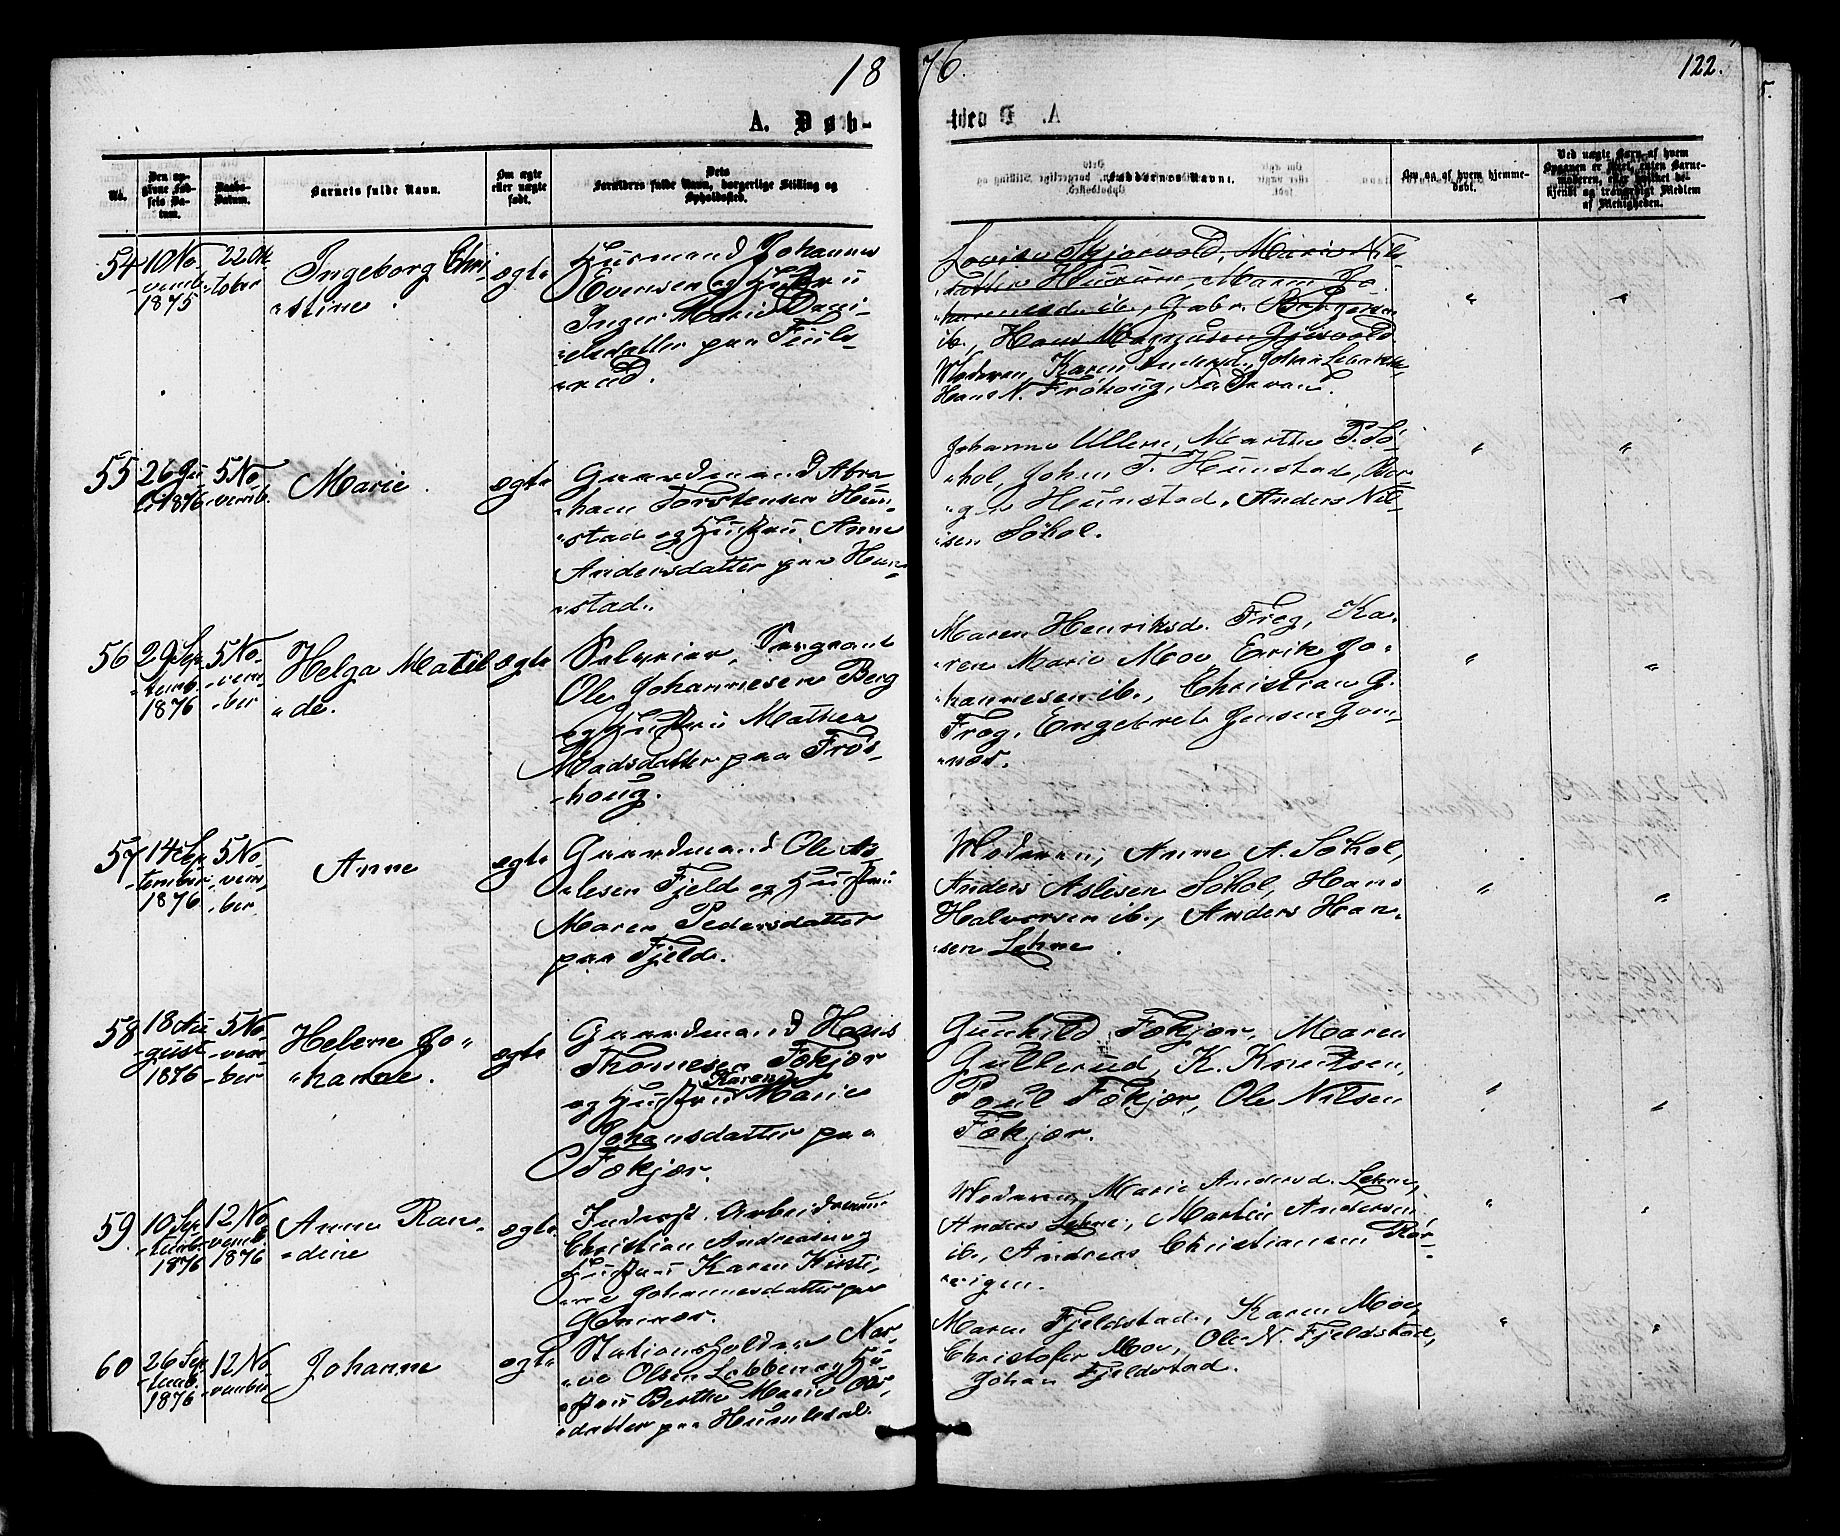 1876.
122.
A. Døb-
No.
Den op-
givne Fød-
sels Da-
tum.
Daabs-
Datum.
Barnets fulde Navn.
Om ægte
eller uægte
født.
Dets
Forældres fulde Navn, borgerlige Stilling og
Opholdssted.
Faddernes Navne.
Om og af hvem hjemme-
døbt.
54
10 No
vemb.
1875
22 Ok
tober
Ingeborg Chri
stine.
ægte
Husmand Johannes
Evensen og Hustru
Inger Marie Dani
elsdatter paa
rud.
Lovise Skjørvold, Marie Nils
datter Hurum, Maren Jo
hannesd. ib., Gabr. Borgersen
ib., Hans Magnusen Gjesvold
Moderen, Karen Andersd., Johan
Hans N. Frøhoug,
"
"
55
26 Ju
li 1876
5 No
vemb.
Marie
ægte
Gaardmand Abra
ham Torstensen Hun
stad og Hustru Anne
Andersdatter paa Hun
stad.
Johanne Ullern, Marthe P. Sø
hol, Johan T. Hunstad, Bør
ge Hunstad, Anders Nil
sen Søhol.
"
"
56
29 Sep
temb.
1876
5 No
vem
ber
Helga Matil
de.
ægte
Selveier, Sergeant
Ole Johannesen Berg
og Hustru Mathea
Madsdatter paa Frøs
houg.
Maren Henriksd. Frog, Ka
ren Marie Moe, Erik Jo
hannesen ib., Christian G.
Frog, Engebret Jensen Gom
næs.
"
"
57
14 Sep
tember
1876
5 No
vem
ber
Anne
ægte
Gaardmand Ole As
lesen Fjeld og Hustru
Maren Pedersdatter
paa Fjeld.
Moderen, Anne A. Søhol,
Anders Aslesen Søhol, Hans
Halvorsen ib., Anders Han
sen Lehne.
"
"
58
18 Au
gust
1876
5 No
vem
ber
Helene Jo
hanne.
ægte
Gaardmand Hans
Thomesen Fækjær
Karen
og Hustru Marie
Johansdatter paa
Fækjær.
Gunhild Fækjær, Maren
Gulbrud, K. Knutsen,
Poul Fækjær, Ole Nilsen
Fækjær.
"
"
59
10 Sep
temb.
1876
12 No
vemb.
1876
Anne Ran
dine
ægte
Inderst. Arbeidsmand
Christian Andreasen og
Hustru Karen Kirsti
ne Johannesdatter paa
Gomnæs.
Moderen, Marie Andersd. Lehne,
Anders Lehne, Martin Andersen
ib., Andreas Christiansen Rør
vigen.
"
"
60
26 Sep
temb.
1876
12 No
vember
Johanne
ægte
Stationsholder Nar
ve Olsen Lobben og Hu
stru Berthe Marie Ols
datter paa Humledal.
Maren Fjeldstad, Karen Moe,
Christofer Moe, Ole N. Fjeldstad,
Johan Fjeldstad.
"
"